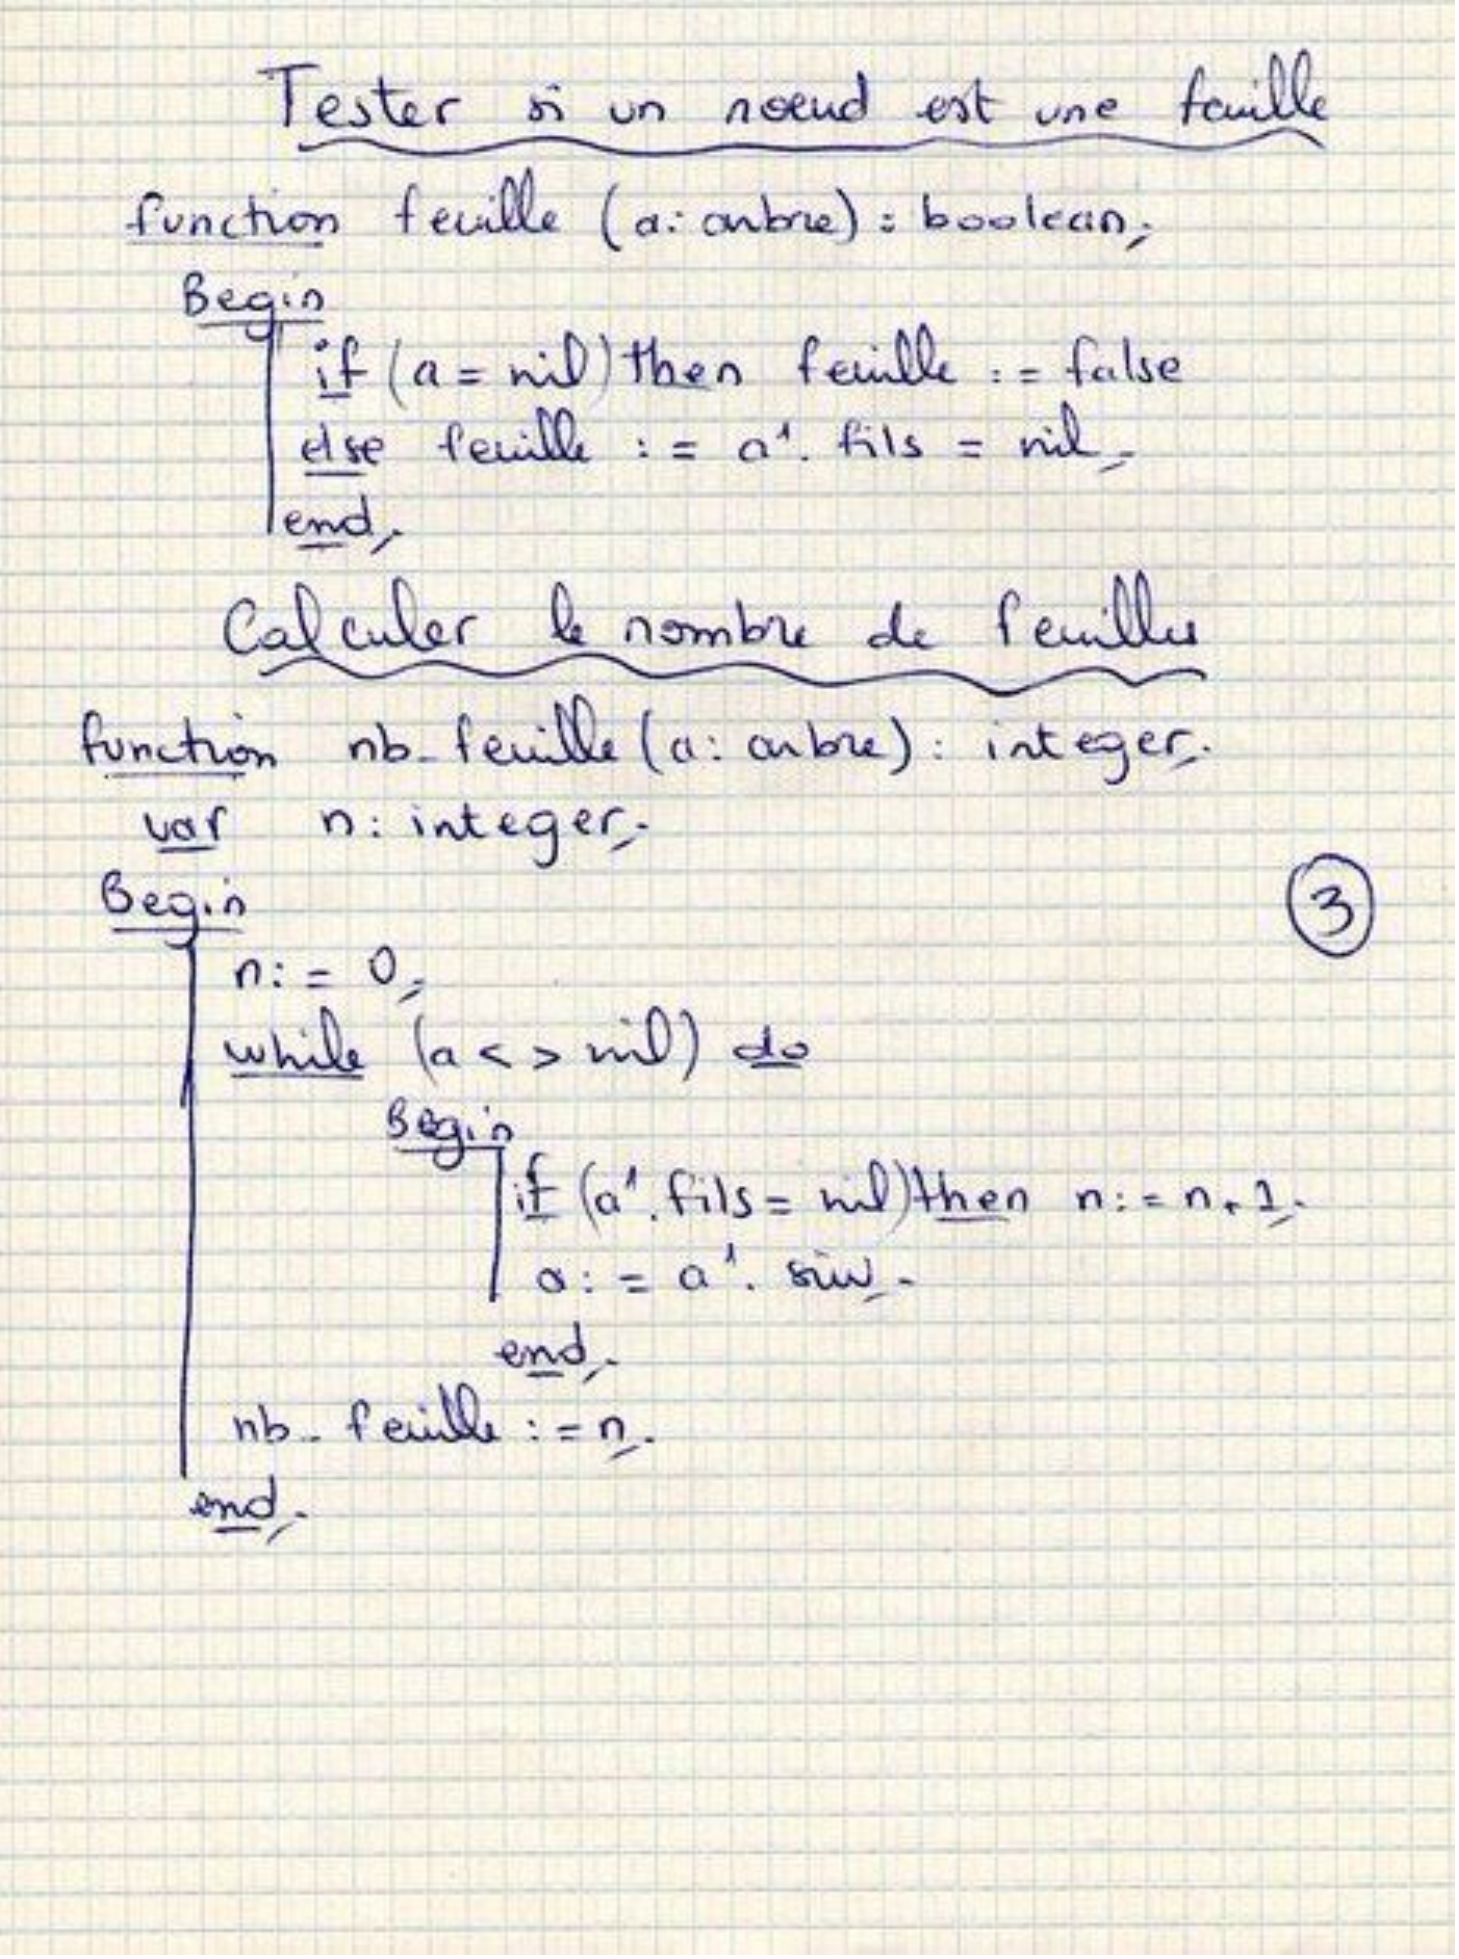 Tester si un noeud est une feuille
function feuille (a: arbre) : boolean;
Begin
if (a = nil) then feuille := false
else feuille := a^. fils = nil;
end;
Calculer le nombre de feuilles
function nb_feuille (a: arbre) : integer;
var n: integer;
Begin
3
n := 0;
while (a <> nil) do
Begin
if (a^. fils = nil) then n := n+1;
a := a^. suiv;
end;
nb_feuille := n;
end;